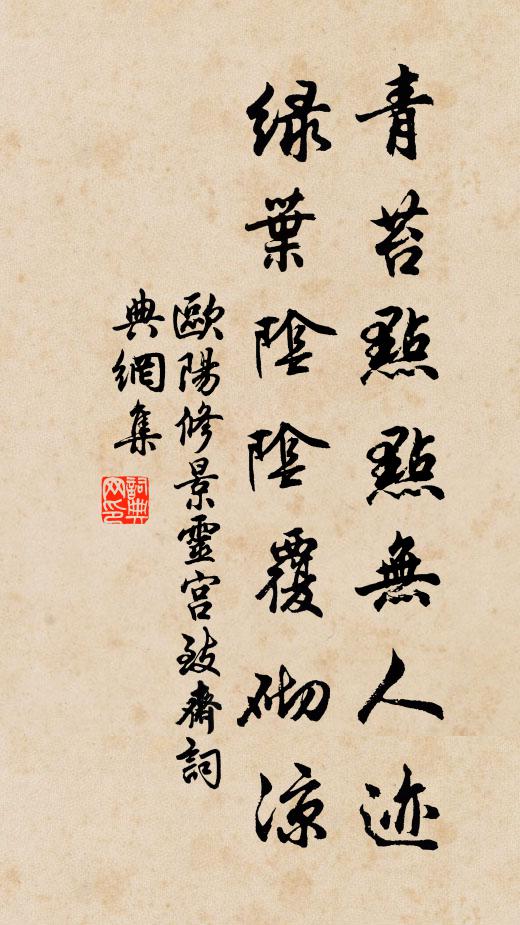 青苔點點無人迹
綠葉陰陰覆砌涼
歐陽修景靈宮致齋詞
典網集
詞典网印